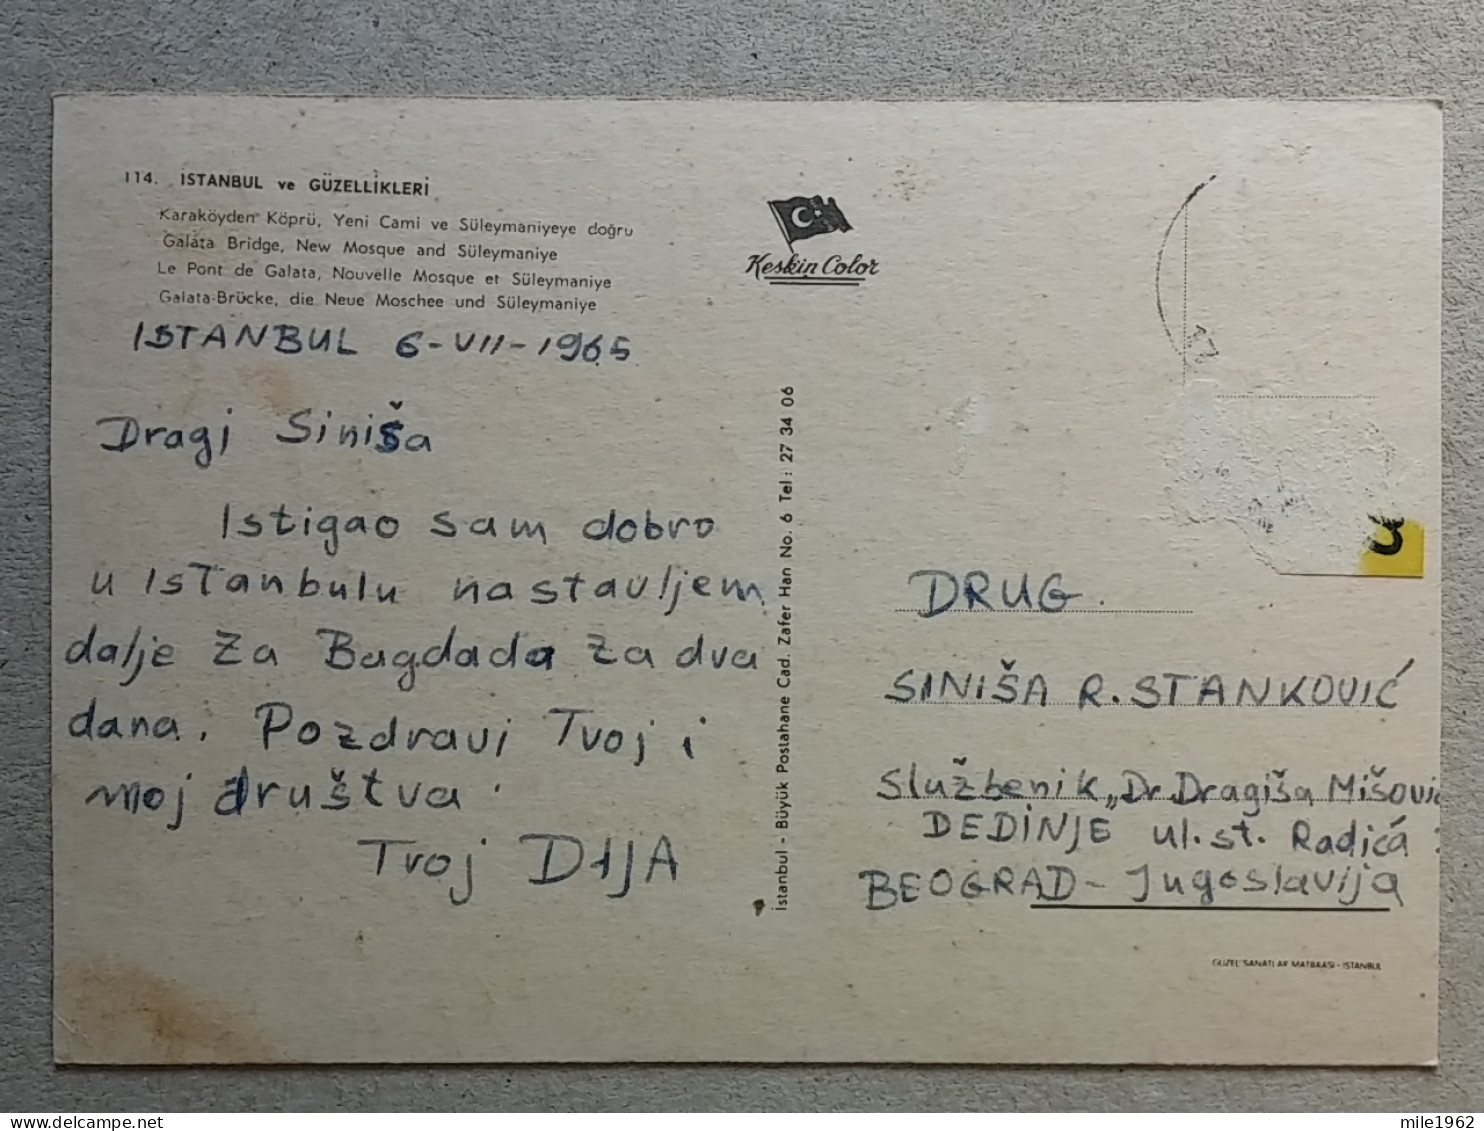 114. İSTANBUL ve GÜZELLİKLERİ
Karaköyden Köprü, Yeni Cami ve Süleymaniyeye doğru
Galata Bridge, New Mosque and Süleymaniye
Le Pont de Galata, Nouvelle Mosque et Süleymaniye
Galata-Brücke, die Neue Moschee und Süleymaniye
Keskin Color
ISTANBUL 6-VII-1965
Dragi Siniša
Istigao sam dobro
u istanbulu nastavljem
dalje za Bagdada za dva
dana. Pozdravi Tvoj i
moj društva.
Tvoj DIJA
İstanbul - Büyük Postahane Cad. Zafer Han No. 6 Tel: 27 34 06
DRUG.
SINIŠA R. STANKOVIĆ
Službenik „Dr. Dragiša Mišović
DEDINJE ul. st. Radića
BEOGRAD - Jugoslavija
GÜZEL SANATLAR MATBAASI - İSTANBUL
mile1962